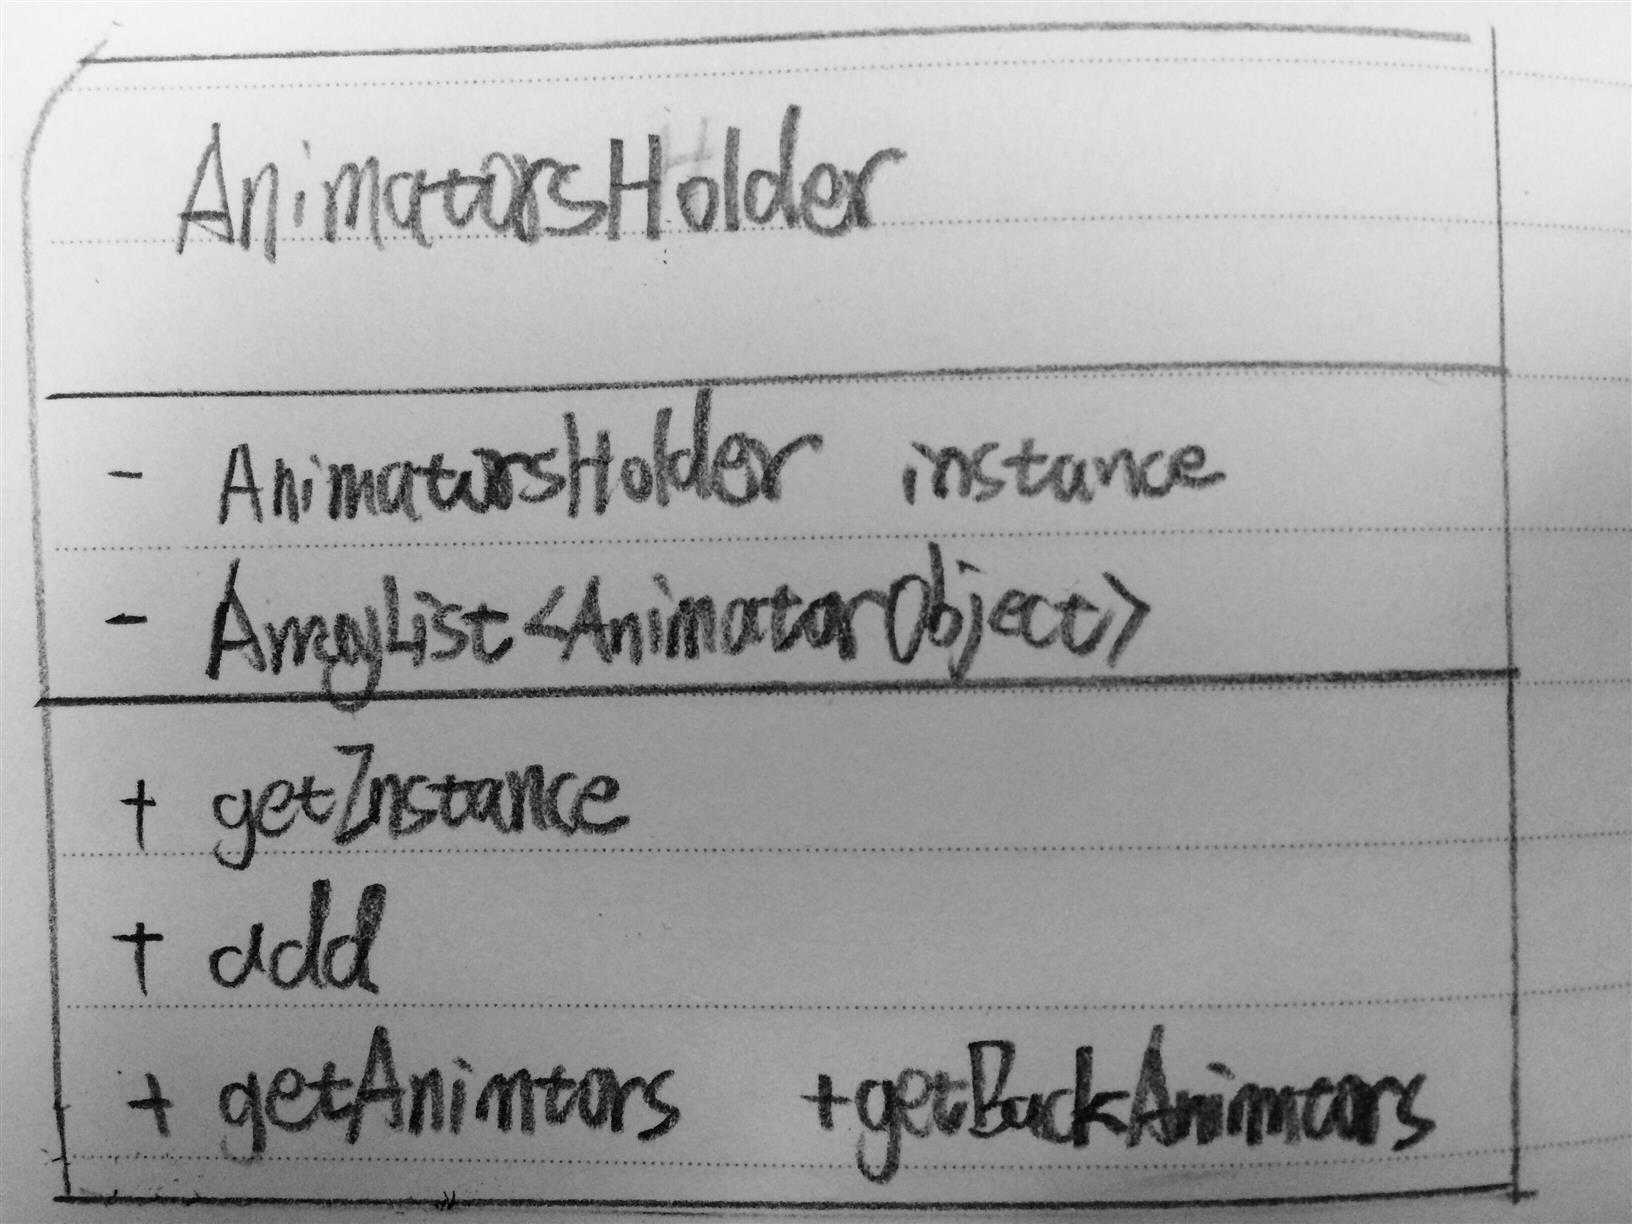 AnimatorsHolder
- AnimatorsHolder instance
- ArrayList<AnimatorObject>
+ getInstance
+ add
+ getAnimtors +getBackAnimtors